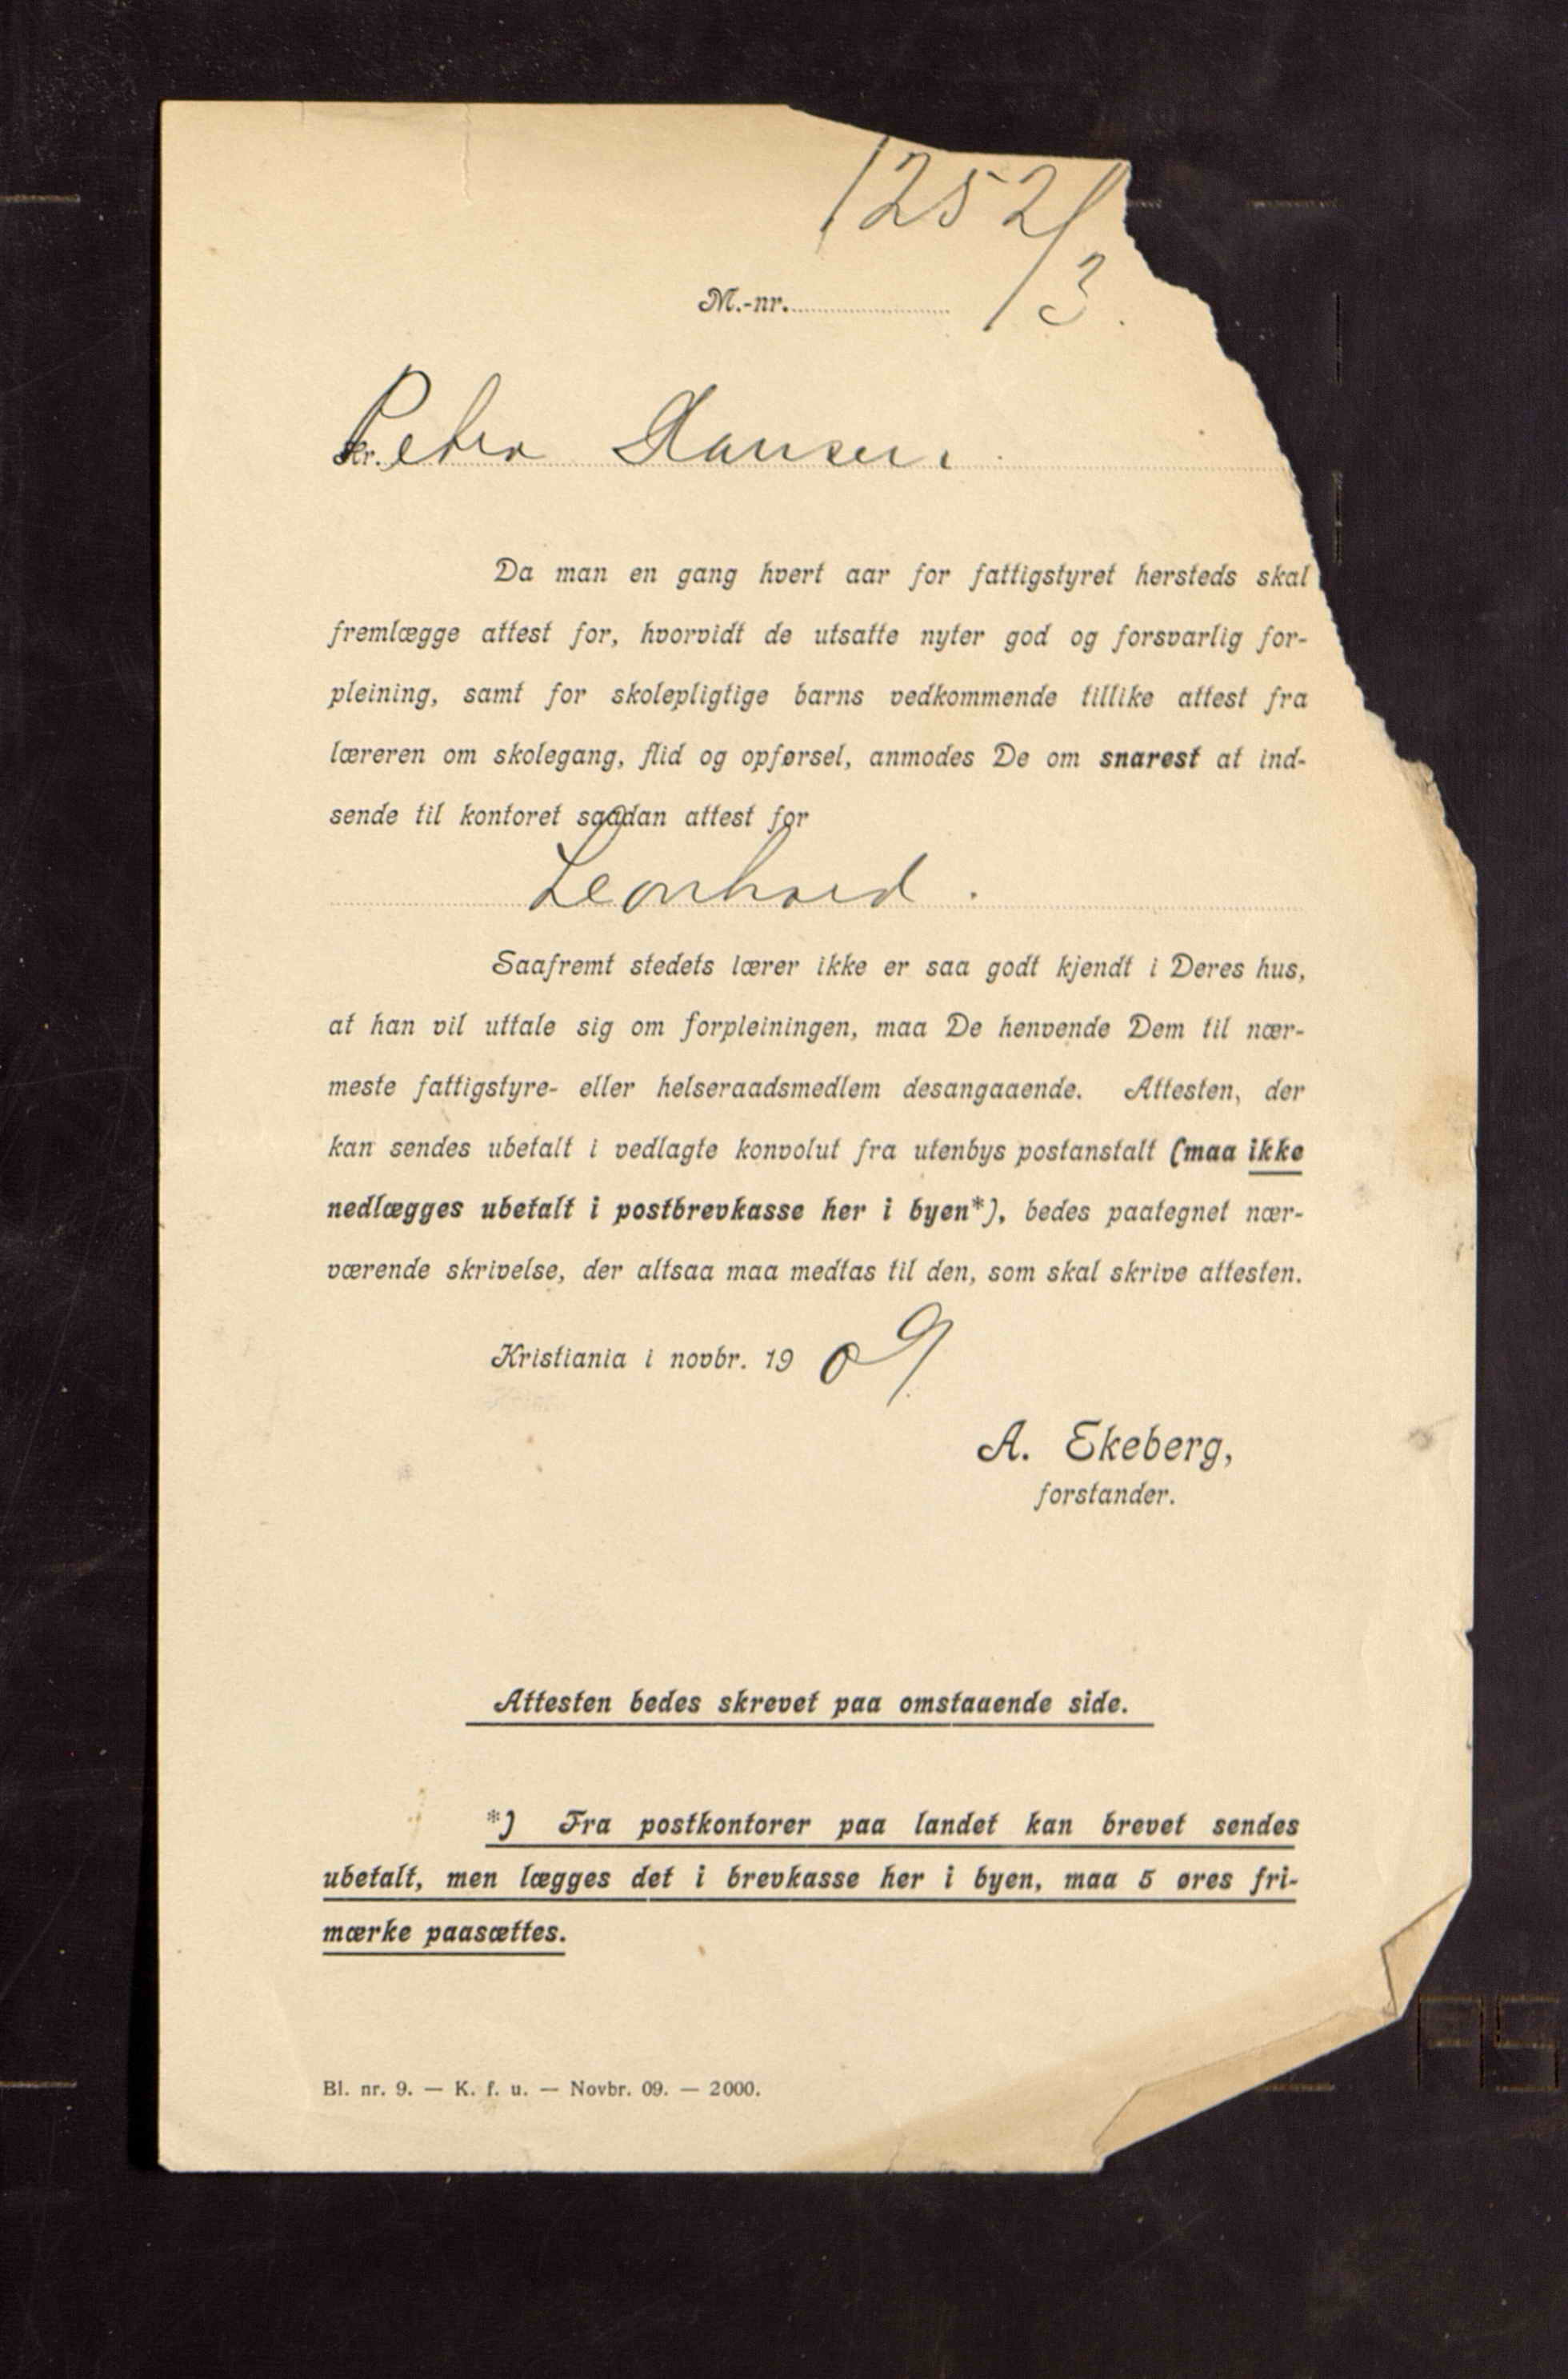 1252/3
M.-nr.
Hr. Petra Hansen.
Da man en gang hvert aar for fattigstyret hersteds skal
fremlægge attest for, hvorvidt de utsatte nyter god og forsvarlig for-
pleining, samt for skolepligtige barns vedkommende tillike attest fra
læreren om skolegang, flid og opførsel, anmodes De om snarest at ind-
sende til kontoret saadan attest for
Leonhard.
Saafremt stedets lærer ikke er saa godt kjendt i Deres hus,
at han vil uttale sig om forpleiningen, maa De henvende Dem til nær-
meste fattigstyre- eller helseraadsmedlem desangaaende. Attesten, der
kan sendes ubetalt i vedlagte konvolut fra utenbys postanstalt (maa ikke
nedlægges ubetalt i postbrevkasse her i byen*), bedes paategnet nær-
værende skrivelse, der altsaa maa medtas til den, som skal skrive attesten.
Kristiania i novbr. 19 09
A. Ekeberg,
forstander.
Attesten bedes skrevet paa omstaaende side.
*) Fra postkontorer paa landet kan brevet sendes
ubetalt, men lægges det i brevkasse her i byen, maa 5 øres fri-
mærke paasættes.
Bl. nr. 9. — K. f. u. — Novbr. 09. — 2000.